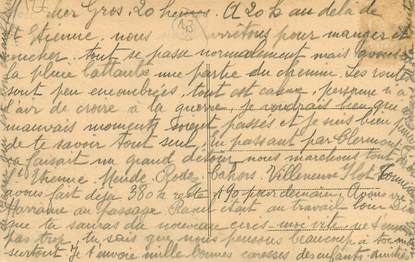 cher Gros. 20 heures. A 20 k au delà de
St Etienne, nous arretons pour manger et
coucher, tout se passe normalement mais avons
la pluie battante une partie du chemin. Les routes
sont peu encombrées, tout est calme, personne n'a
l'air de croire à la guerre, je voudrais bien que
mauvais moments soient passés et je suis bien
de te savoir tout seul, en passant par Clermont
ça faisait un grand détour, nous marchons tout
St Etienne Mende Rodez Cahors. Villeneuve s/Lot
avons fait déjà 380 k reste 490 pour demain. Avons vu
Marraine au passage Raoul était au travail
que tu sauras du nouveau écris-moi vite, ne t'ennuie
pas trop, tu sais que nous pensons beaucoup à toi
surtout. Je t'envoie mille bonnes caresses des enfants